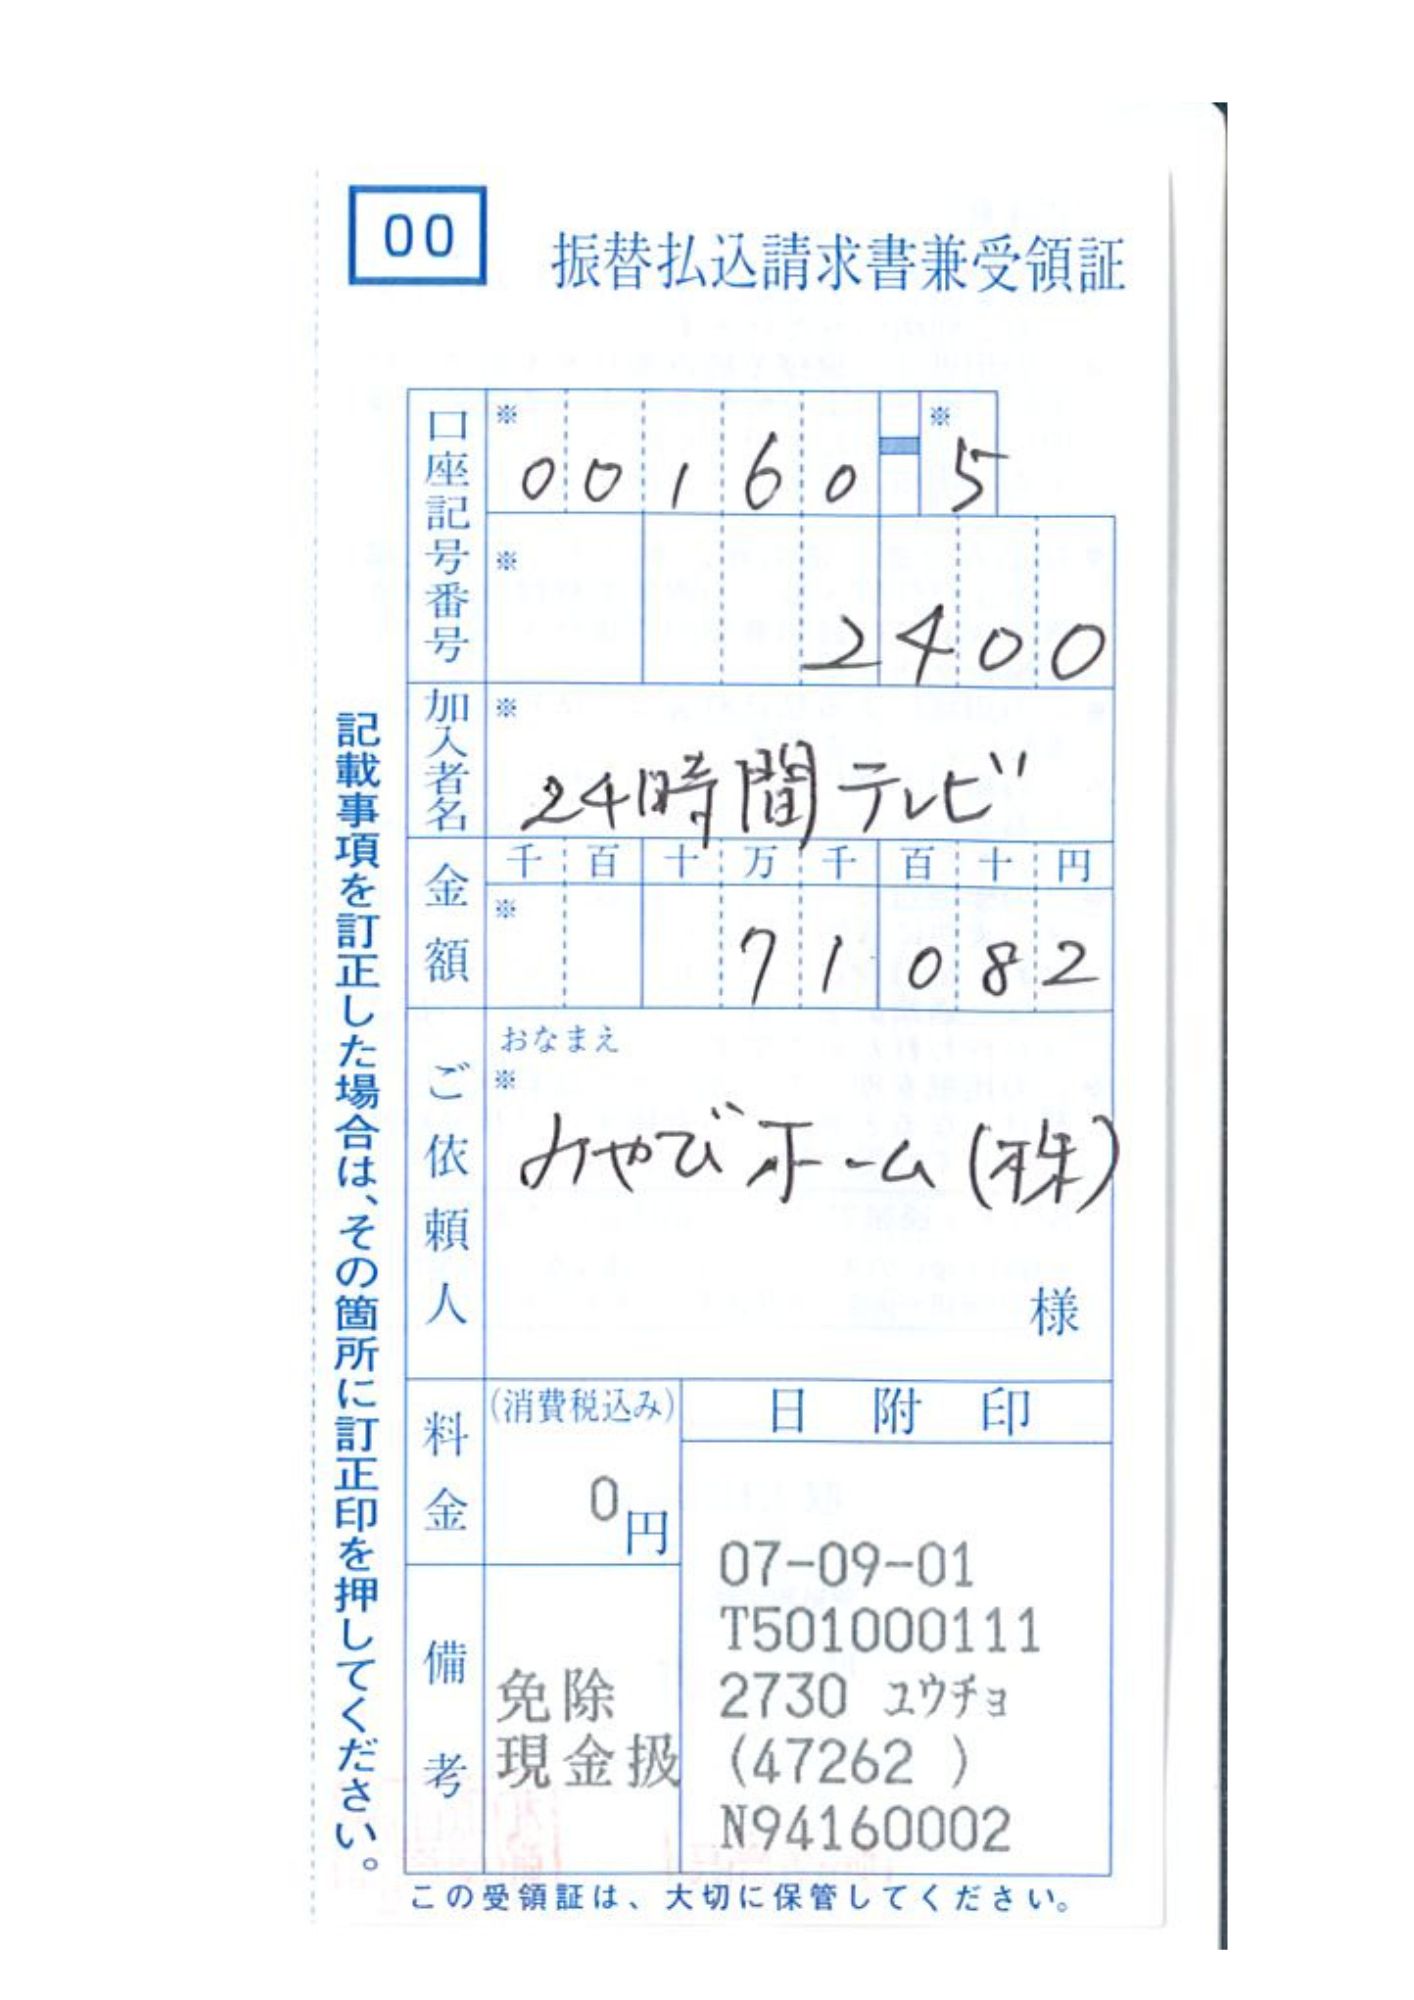 00
振替払込請求書兼受領証
口座記号番号
※ ※
00160-5
※
2400
加入者名
※
24時間テレビ
金額
千 百 十 万 千 百 十 円
※
71082
ご依頼人
おなまえ
※
みやびホーム(株)
様
料金
(消費税込み)
0円
備考
免除
現金扱
日附印
07-09-01
T501000111
2730 ユウチョ
(47262 )
N94160002
記載事項を訂正した場合は、その箇所に訂正印を押してください。
この受領証は、大切に保管してください。